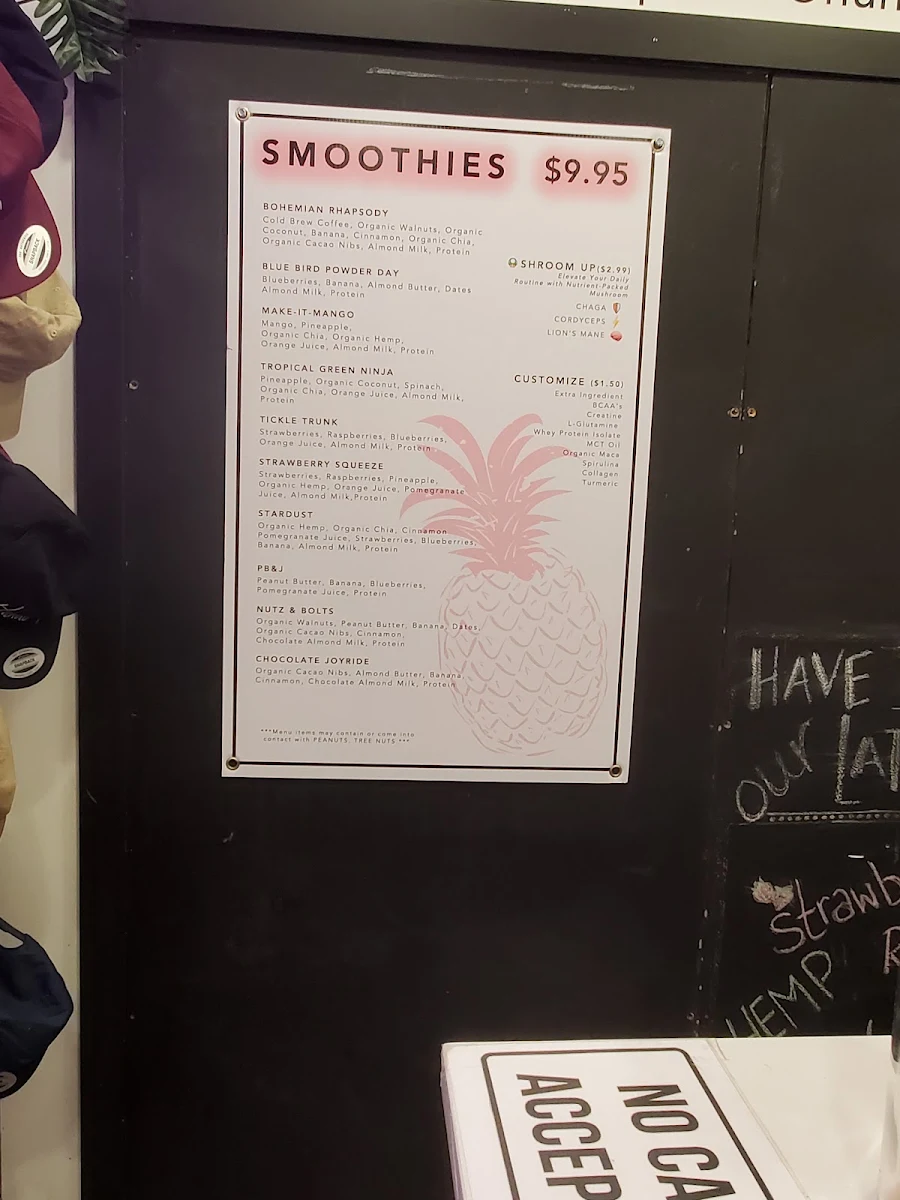 SMOOTHIES $9.95
BOHEMIAN RHAPSODY
Cold Brew Coffee, Organic Walnuts, Organic
Coconut, Banana, Cinnamon, Organic Chia,
Organic Cacao Nibs, Almond Milk, Protein
BLUE BIRD POWDER DAY
Blueberries, Banana, Almond Butter, Dates
Almond Milk, Protein
MAKE-IT-MANGO
Mango, Pineapple,
Organic Chia, Organic Hemp,
Orange Juice, Almond Milk, Protein
TROPICAL GREEN NINJA
Pineapple, Organic Coconut, Spinach,
Organic Chia, Orange Juice, Almond Milk,
Protein
TICKLE TRUNK
Strawberries, Raspberries, Blueberries,
Orange Juice, Almond Milk, Protein
STRAWBERRY SQUEEZE
Strawberries, Raspberries, Pineapple,
Organic Hemp, Orange Juice, Pomegranate
Juice, Almond Milk,Protein
STARDUST
Organic Hemp, Organic Chia, Cinnamon
Pomegranate Juice, Strawberries, Blueberries,
Banana, Almond Milk, Protein
PB&J
Peanut Butter, Banana, Blueberries,
Pomegranate Juice, Protein
NUTZ & BOLTS
Organic Walnuts, Peanut Butter, Banana, Dates,
Organic Cacao Nibs, Cinnamon,
Chocolate Almond Milk, Protein
CHOCOLATE JOYRIDE
Organic Cacao Nibs, Almond Butter, Banana,
Cinnamon, Chocolate Almond Milk, Protein
***Menu items may contain or come into
contact with PEANUTS, TREE NUTS ***
SHROOM UP($2.99)
Elevate Your Daily
Routine with Nutrient-Packed
Mushroom
CHAGA
CORDYCEPS
LION'S MANE
CUSTOMIZE ($1.50)
Extra Ingredient
BCAA's
Creatine
L-Glutamine
Whey Protein Isolate
MCT Oil
Organic Maca
Spirulina
Collagen
Turmeric
HAVE
our LAT
Strawb
R
HEMP
NO CA
ACCEP
SNAPBACK
SNAPBACK